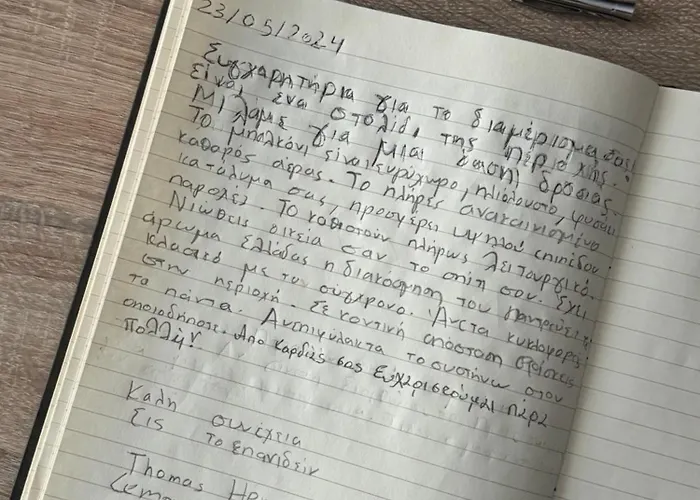 23/05/2024
Συγχαρητήρια για το διαμέρισμα σας!
Είναι ένα στολίδι της περιοχής.
Μιλάμε για μια όαση δροσιάς.
Το μπαλκόνι είναι ευρύχωρο, ηλιόλουστο, φυσάει
καθαρός αέρας. Το πλήρες ανακαινισμένο
κατάλυμα σας, προσφέρει υψηλού επιπέδου
παροχές. Το καθιστούν πλήρως λειτουργικό.
Νιώθεις οικεία σαν το σπίτι σου. Έχει
άρωμα Ελλάδας η διακόσμηση του παντρεύει το
κλασικό με τον σύγχρονο. Άνετα κυκλοφορείς
στην περιοχή. Σε κοντινή απόσταση βρίσκεις
τα πάντα. Ανεπιφύλακτα το συστήνω στον
οποιοδήποτε. Από καρδιάς σας ευχαριστούμε πάρα
πολλή!
Καλη συνέχεια
Εις το επανιδείν
Thomas